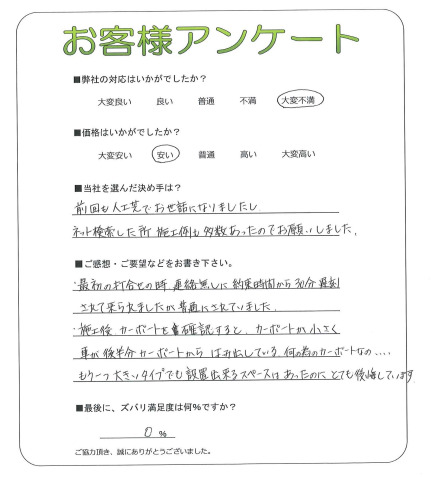 お客様アンケート
■弊社の対応はいかがでしたか？
大変良い 良い 普通 不満 大変不満
■価格はいかがでしたか？
大変安い 安い 普通 高い 大変高い
■当社を選んだ決め手は？
前回も人工芝でお世話になりましたし
ネット検索した所 施工例も多数あったのでお願いしました。
■ご感想・ご要望などをお書き下さい。
・最初の打合せの時、連絡無しに約束時間から30分遅刻
されて来られましたが普通にされていました。
・施工後 カーポートを確認すると、カーポートが小さく
車が後半分カーポートからはみ出している 何の為のカーポートなの....
もう一つ大きいタイプでも設置出来るスペースはあったのに とても後悔しています
■最後に、ズバリ満足度は何％ですか？
0 ％
ご協力頂き、誠にありがとうございました。